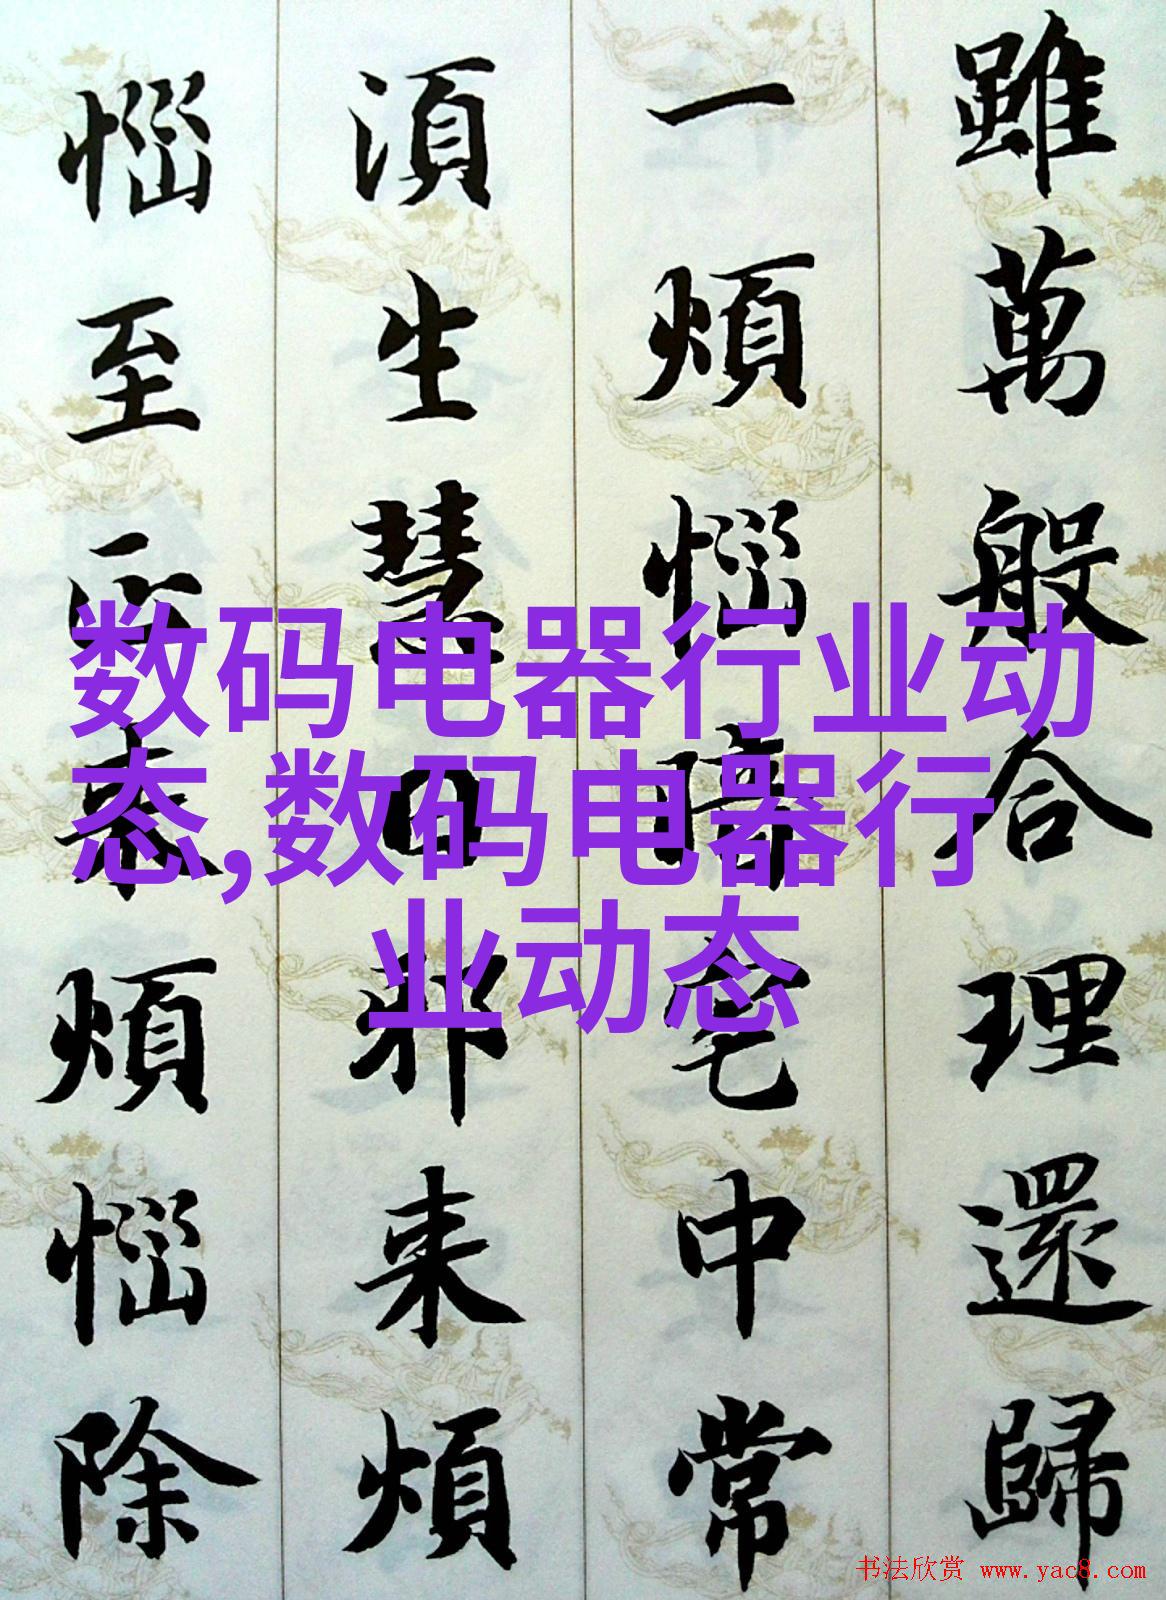 雖萬般合理還歸
一煩惱暗宅中常
湏生慧日邪来煩
惱至正来煩惱除
数码电器行业动
态,数码电器行
业动态
书法欣赏 www.yac8.com